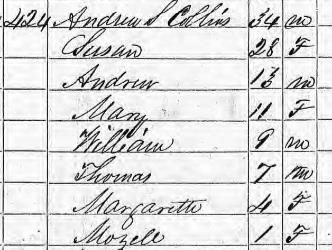 424 Andrew S Collins 34 m
Susan 28 F
Andrew 13 m
Mary 11 F
William 9 m
Thomas 7 m
Margarett 4 F
Mozell 1 F